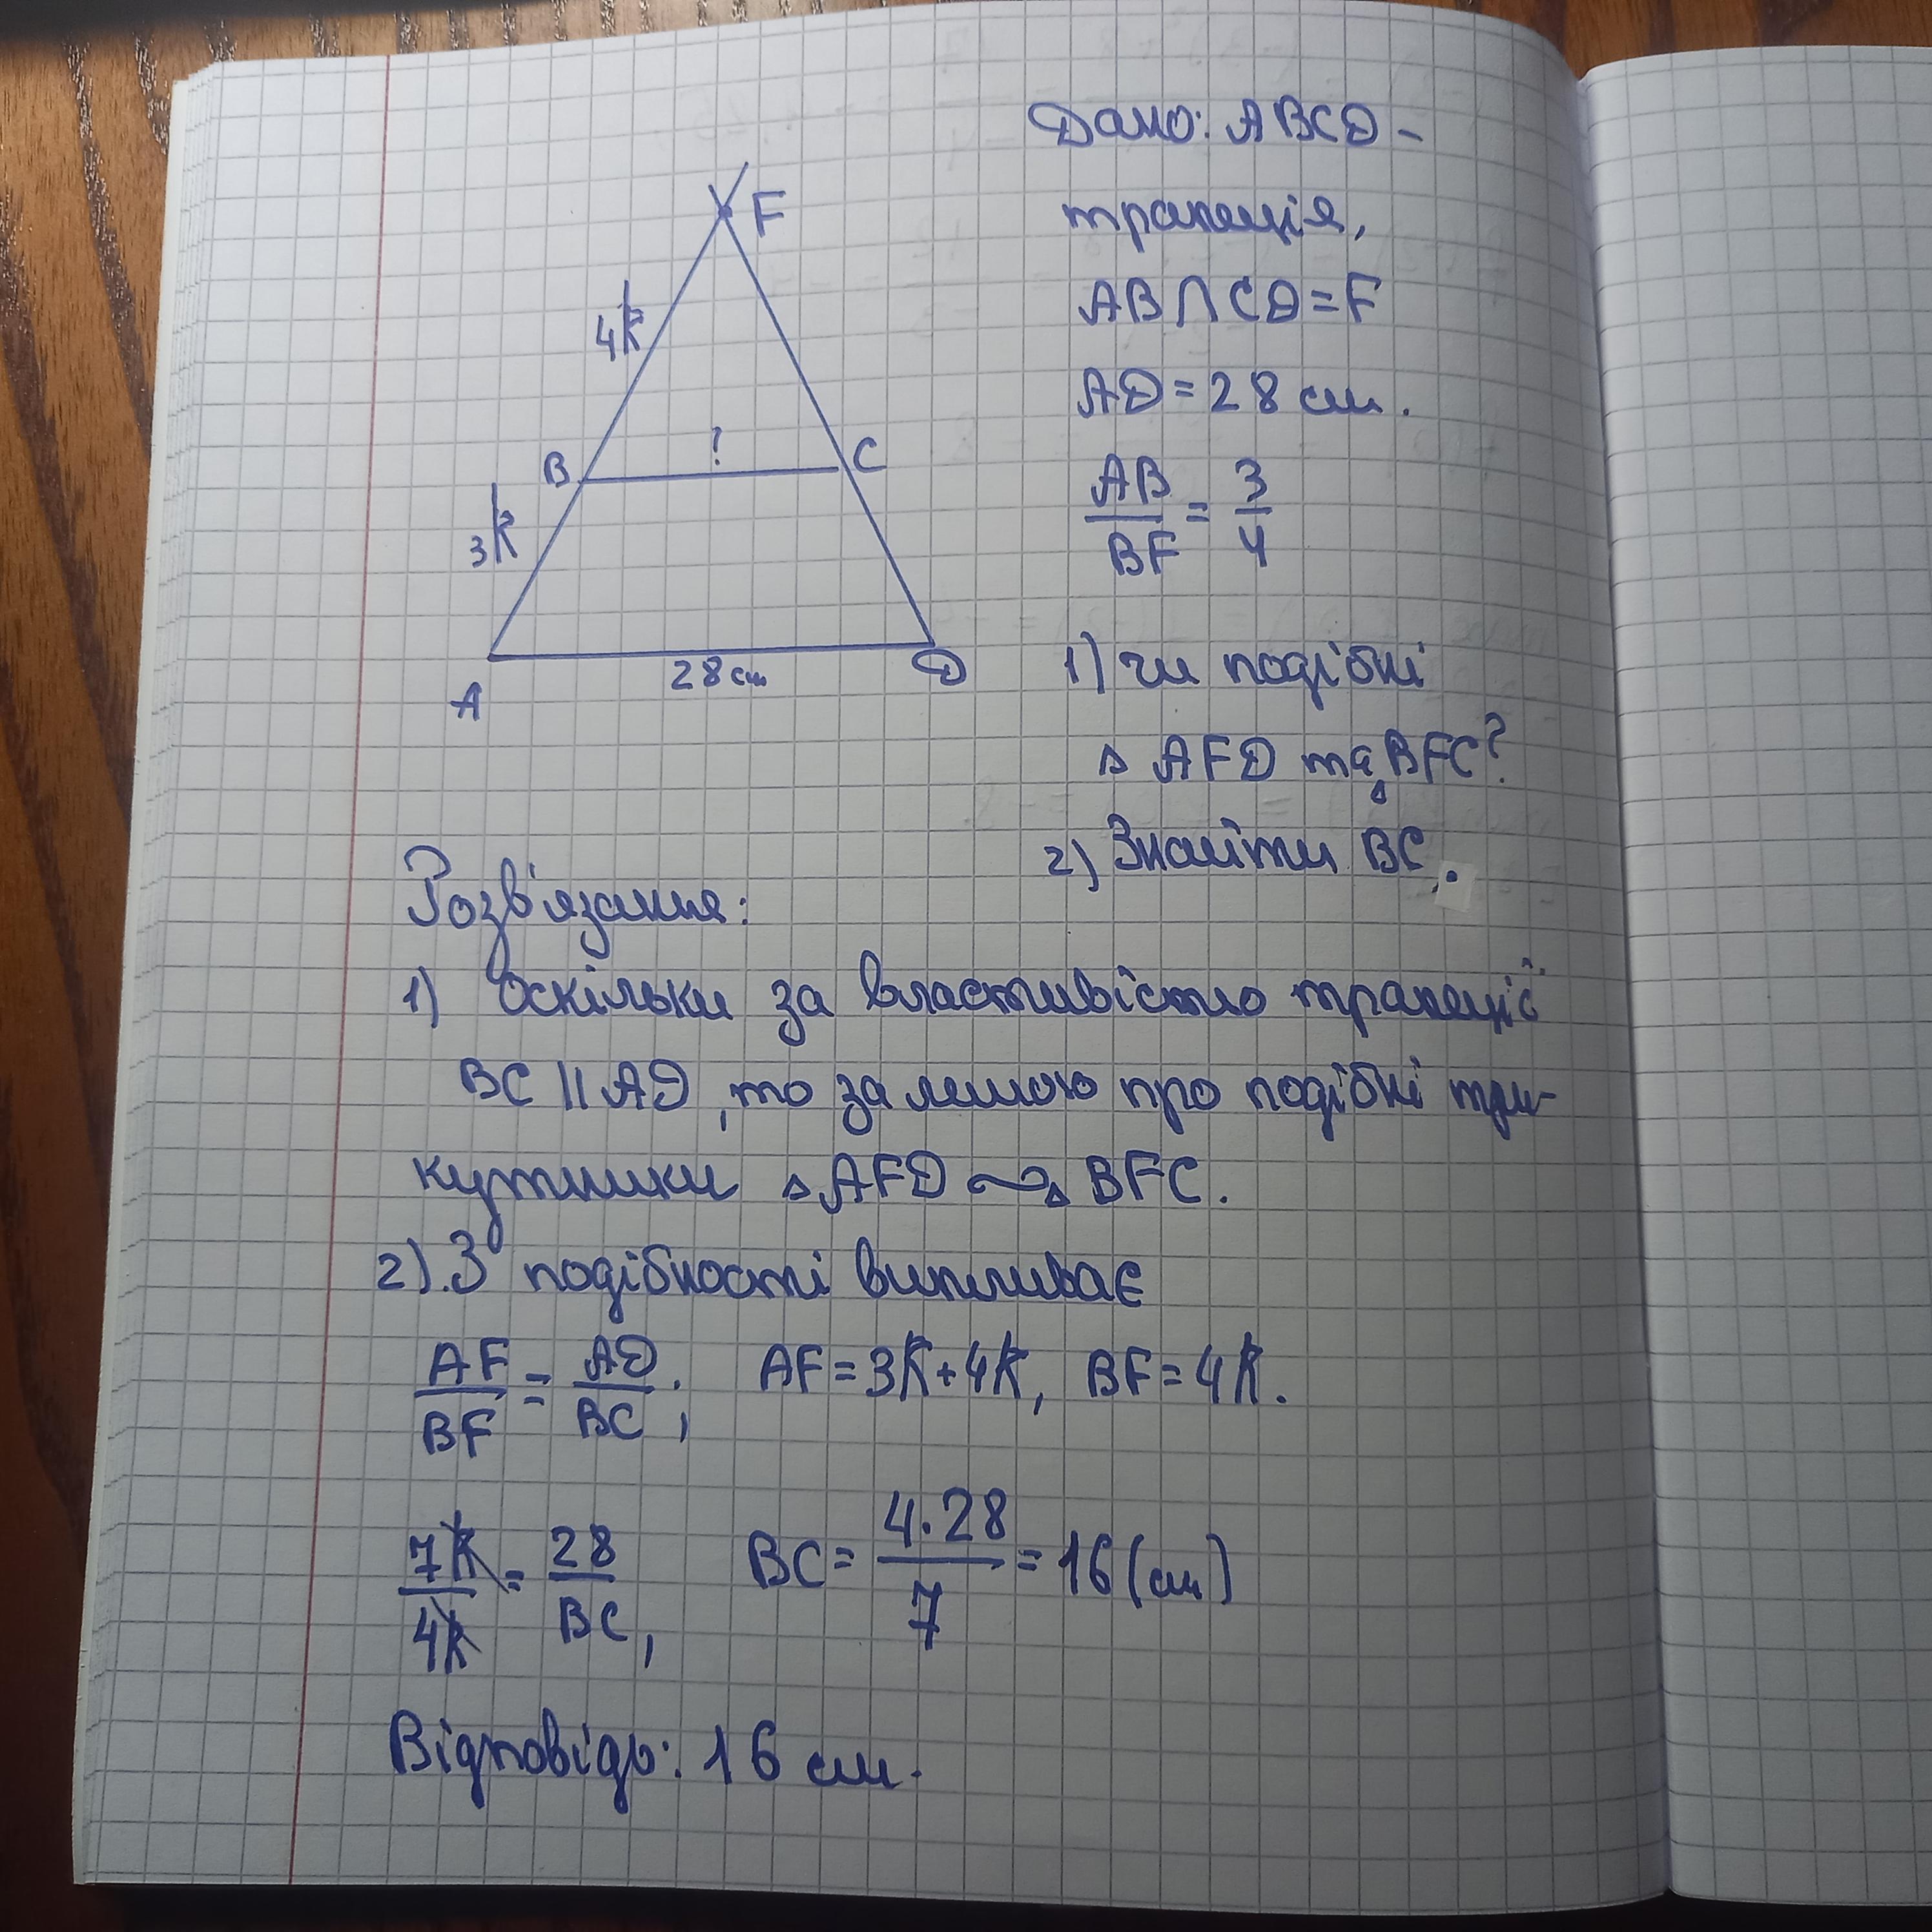 F
4k
B
?
C
3k
A
28 см
D
Дано: ABCD -
трапеція,
AB ∩ CD = F
AD = 28 см.
AB/BF = 3/4
1) чи подібні
△ AFD та △ BFC?
2) Знайти BC.
Розв'язання:
1) Оскільки за властивістю трапеції
BC || AD, то за лемою про подібні три-
кутники △ AFD ∼ △ BFC.
2). З подібності випливає
AF/BF = AD/BC; AF = 3k + 4k, BF = 4k.
7k/4k = 28/BC, BC = 4·28/7 = 16 (см)
Відповідь: 16 см.